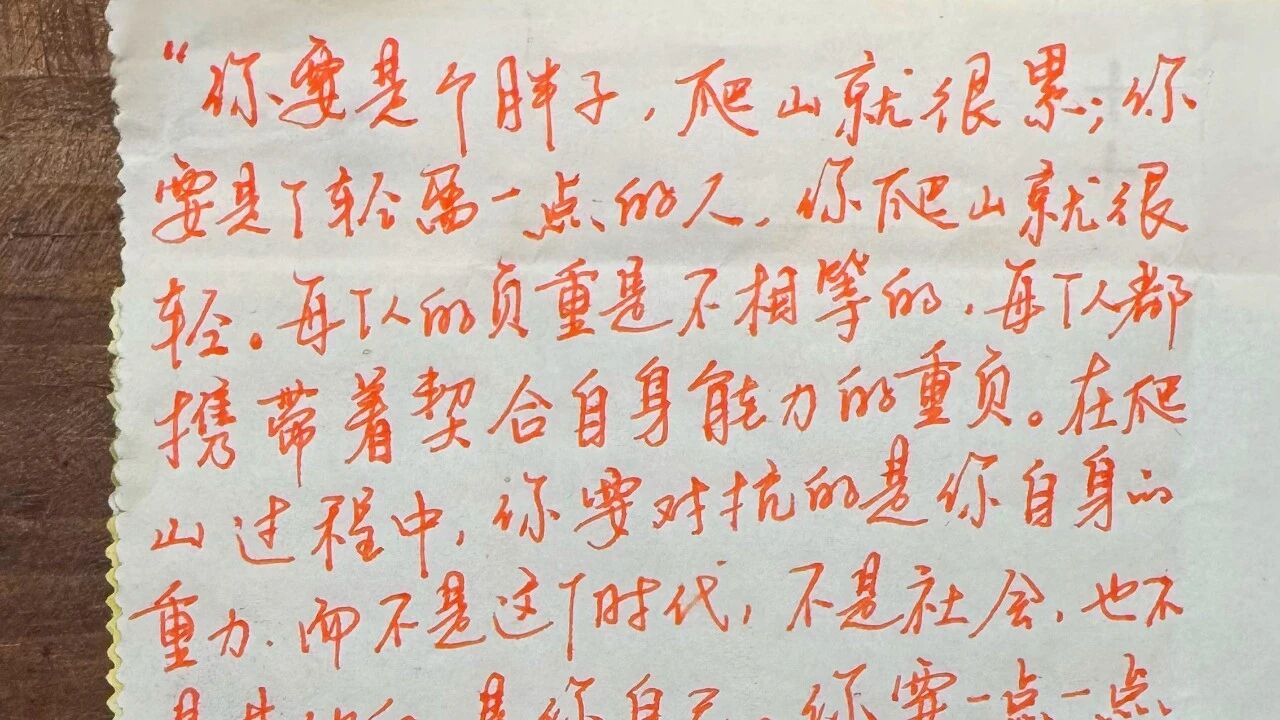 “你要是个胖子，爬山就很累；你
要是个轻盈一点的人，你爬山就很
轻。每个人的负重是不相等的，每个人都
携带着契合自身能力的重负。在爬
山过程中，你要对抗的是你自身的
重力．而不是这个时代，不是社会，也不
是其他的，是你自己。你要一点一点